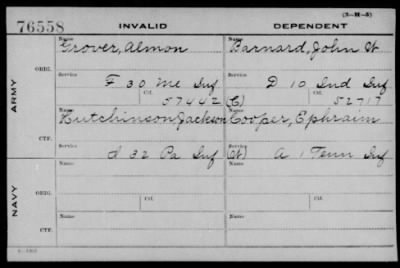 (3-H-5)
76558 INVALID DEPENDENT
Name Name
Grover, Almon Barnard, John W
ARMY
ORIG.
Service Service
F 30 Me Inf D 10 Ind Inf
Ctf. Ctf.
57442 (C) 52717
Name Name
Hutchinson, Jackson Cooper, Ephraim
CTF.
Service Service
d 32 Pa Inf A 1 Tenn Inf
NAVY
Name Name
ORIG.
Service Ctf. Service Ctf.
Name Name
CTF.
Service Service